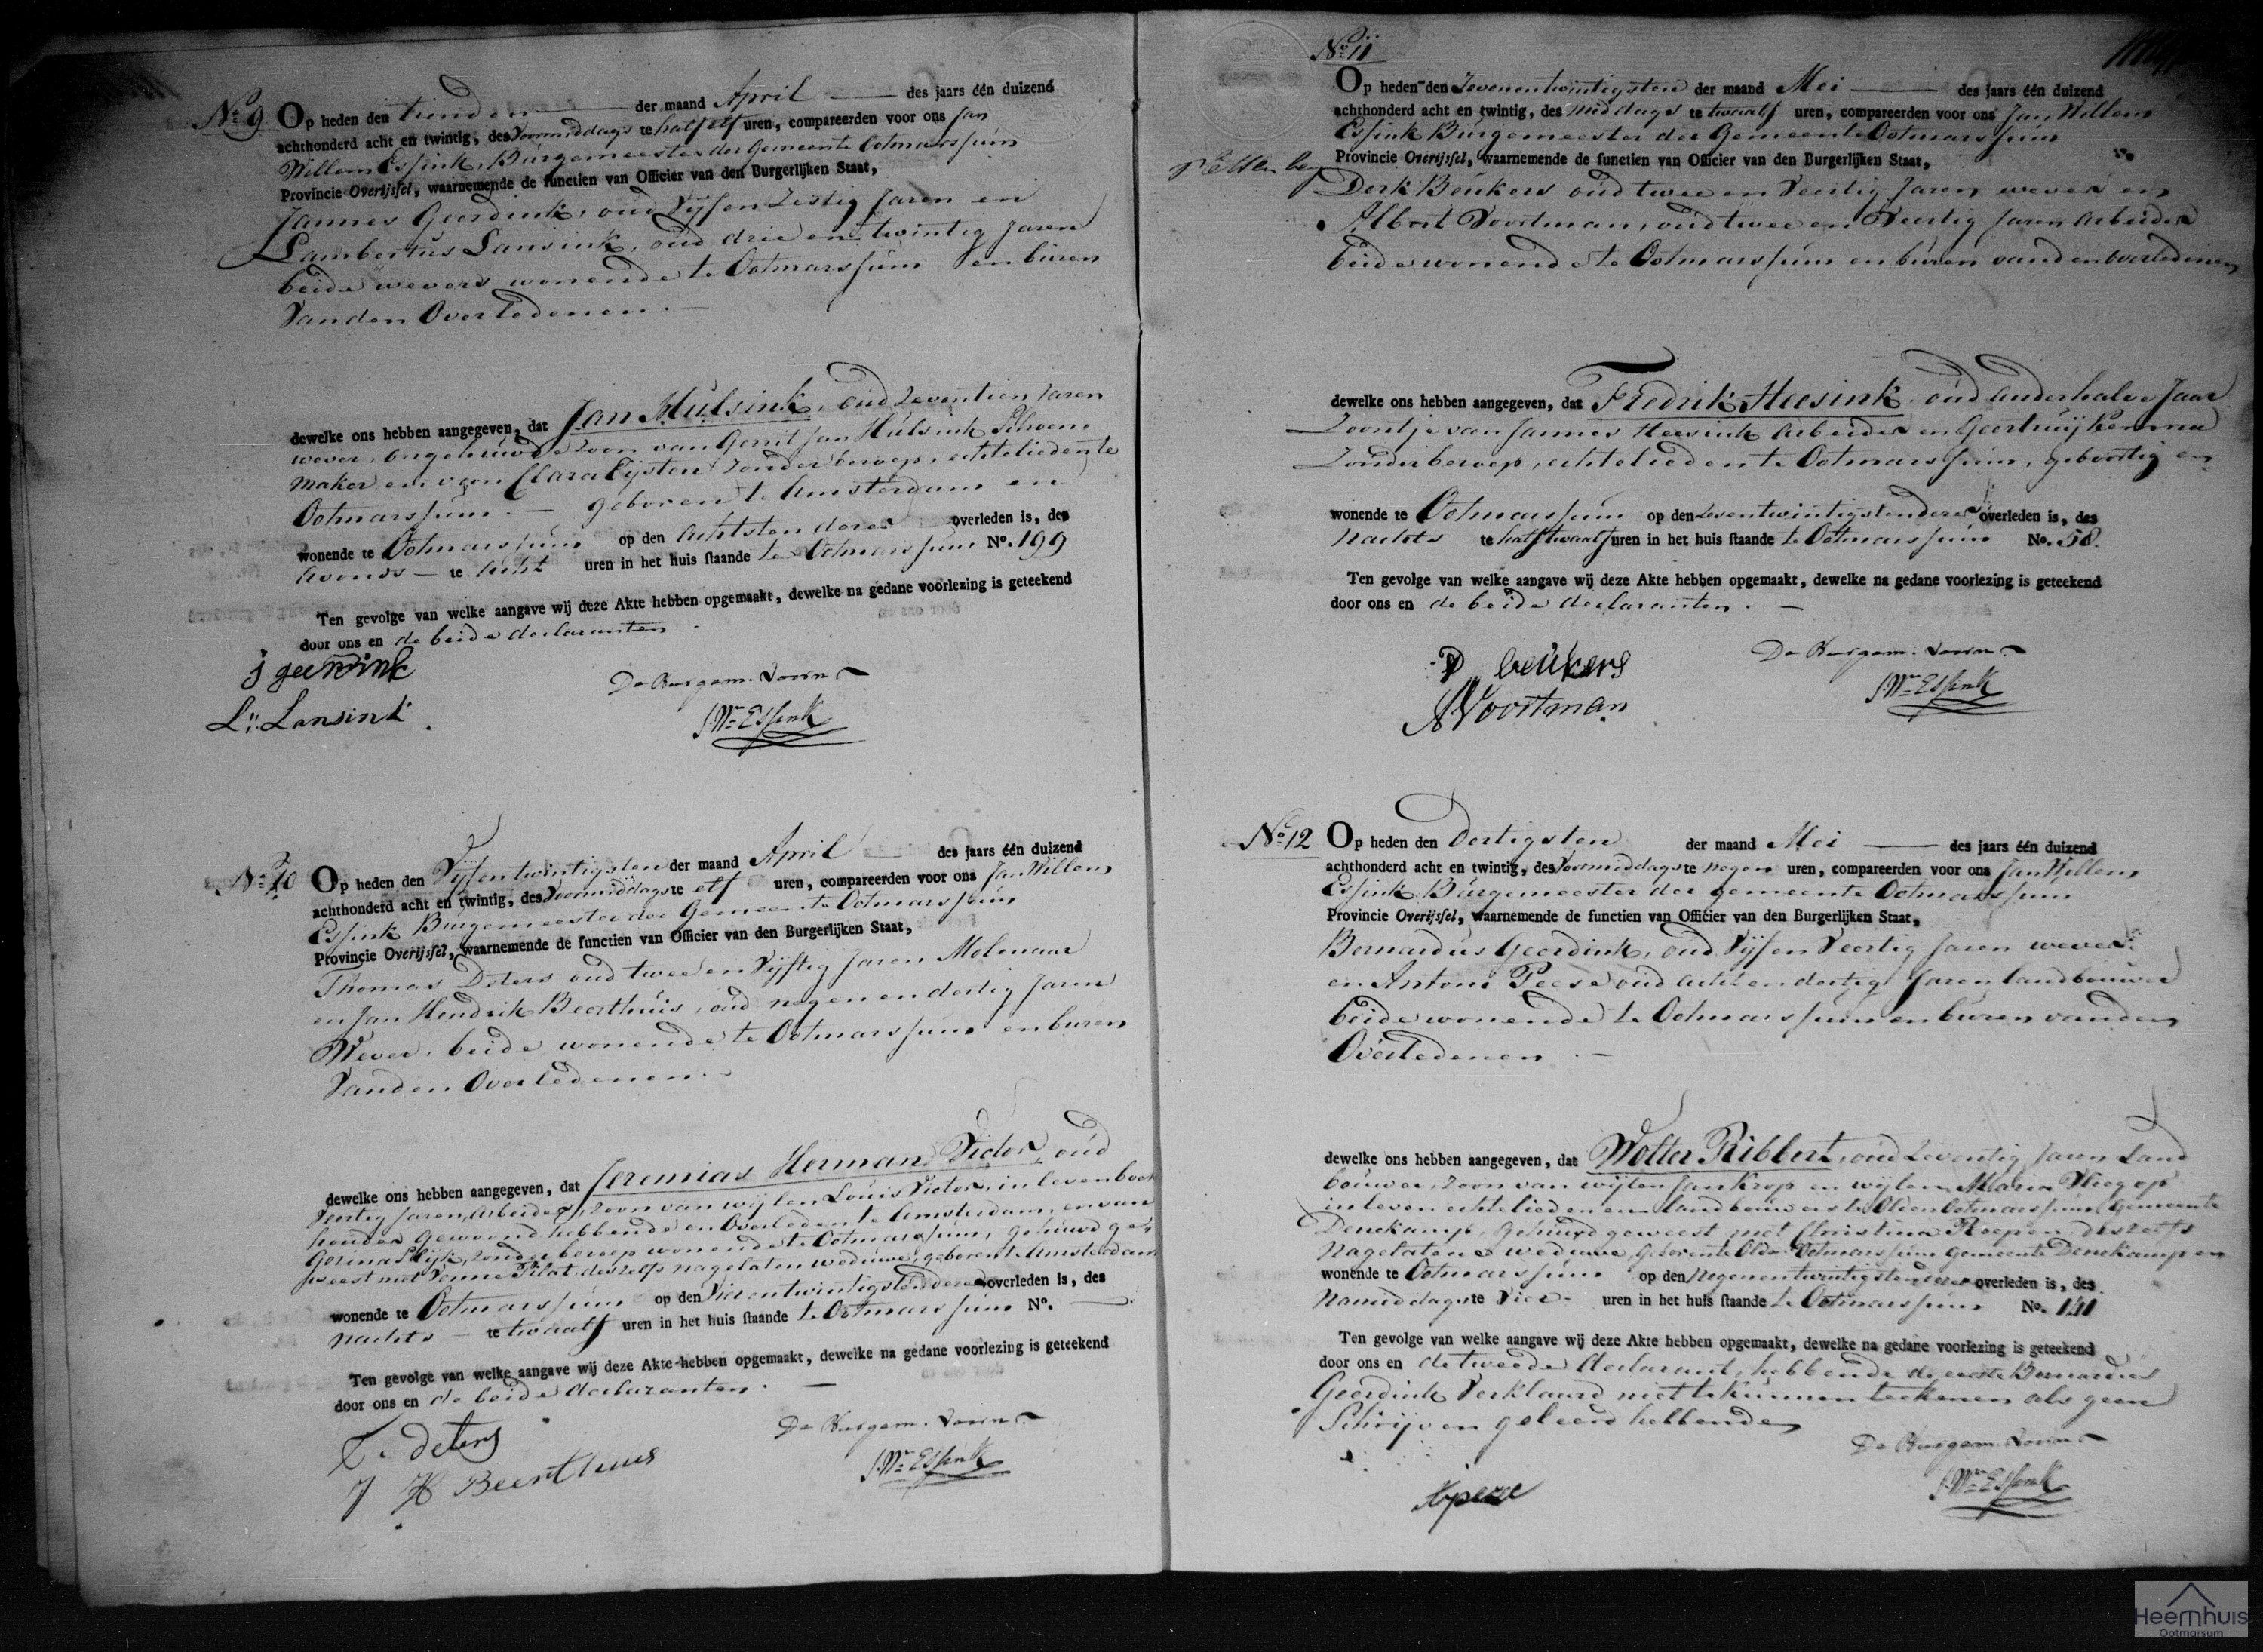 No 9 Op heden den tienden der maand April des jaars één duizend
achthonderd acht en twintig, des Voormiddags te half elf uren, compareerden voor ons Jan
Willem Essink, Burgemeester der Gemeente Ootmarssum
Provincie Overijssel, waarnemende de functien van Officier van den Burgerlijken Staat,
Jannes Geerdink, oud Vijf en Zestig Jaren en
Lambertus Lansink, oud drie en twintig Jaren
beide wevers wonende te Ootmarssum en buren
Van den Overledenen.
dewelke ons hebben aangegeven, dat Jan Hulsink, oud Zeventien Jaren
wever, ongehuwde Zoon van Gerrit Jan Hulsink Schoen
maker en van Clara Eijsten Zonder beroep, echtelieden te
Ootmarssum. geboren te Amsterdam en
wonende te Ootmarssum op den Achtsten dezer overleden is, des
Avonds te Acht uren in het huis staande te Ootmarssum No. 199
Ten gevolge van welke aangave wij deze Akte hebben opgemaakt, dewelke na gedane voorlezing is geteekend
door ons en de beide declaranten.
j geerdink
L. Lansink
De Burgem. voorn
J.Wm Essink
No 10 Op heden den Vijfentwintigsten der maand April des jaars één duizend
achthonderd acht en twintig, des Voormiddags te elf uren, compareerden voor ons Jan Willem
Essink Burgemeester der Gemeente Ootmarssum
Provincie Overijssel, waarnemende de functien van Officier van den Burgerlijken Staat,
Thomas Deters oud twee en Vijftig Jaren Molenaar
en Jan Hendrik Beerthuis, oud negen en dertig Jaren
Wever, beide wonende te Ootmarssum en buren
Van den Overledenen.
dewelke ons hebben aangegeven, dat Jeremias Herman Victor, oud
Jaren, Arbeider, Zoon van wijlen Louis Victor, in leven boek
houder gewoond hebbende en Overleden te Amsterdam, en van
Gezina Slijk, zonder beroep wonende te Ootmarssum, gehuwd ge-
weest met Pilat, deszelfs nagelaten weduwe, geboren te Amsterdam
wonende te Ootmarssum op den Vierentwintigsten dezer overleden is, des
Nachts te twaalf uren in het huis staande te Ootmarssum No.
Ten gevolge van welke aangave wij deze Akte hebben opgemaakt, dewelke na gedane voorlezing is geteekend
door ons en de beide declaranten.
T. deters
J H Beerthuis
De Burgem. voorn
J.Wm Essink
No 11
Op heden den Zevenentwintigsten der maand Mei des jaars één duizend
achthonderd acht en twintig, des middags te twaalf uren, compareerden voor ons Jan Willem
Essink Burgemeester der Gemeente Ootmarssum
Provincie Overijssel, waarnemende de functien van Officier van den Burgerlijken Staat,
Derk Beukers oud twee en Veertig Jaren wever en
Albert Voortman, oud twee en Veertig Jaren Arbeider
beide wonende te Ootmarssum en buren van den overledenen
dewelke ons hebben aangegeven, dat Fredrik Heesink, oud Anderhalve Jaar
Zoontje van Jannes Heesink Arbeider en Geertruij
Zonder beroep, echtelieden te Ootmarssum, geboortig en
wonende te Ootmarssum op den Zevenentwintigsten dezer overleden is, des
Nachts te half twaalf uren in het huis staande te Ootmarssum No. 58.
Ten gevolge van welke aangave wij deze Akte hebben opgemaakt, dewelke na gedane voorlezing is geteekend
door ons en de beide declaranten.
D beukers
A Voortman
De Burgem. voorn
J.Wm Essink
No 12 Op heden den Dertigsten der maand Mei des jaars één duizend
achthonderd acht en twintig, des Voormiddags te negen uren, compareerden voor ons Jan Willem
Essink Burgemeester der gemeente Ootmarssum
Provincie Overijssel, waarnemende de functien van Officier van den Burgerlijken Staat,
Bernardus Geerdink, oud Vijf en Veertig Jaren wever
en Antoni Peese oud acht en dertig Jaren landbouwer
beide wonende te Ootmarssum en buren van den
Overledenen.
dewelke ons hebben aangegeven, dat Wolter Ribbert, oud Zeventig Jaren Land
bouwer, Zoon van wijlen Jan Krop en wijlen Maria Vliegop
in leven echtelieden en landbouwers te Olden Ootmarssum Gemeente
Denekamp, gehuwd geweest met Christina Roepen deszelfs
Nagelatene weduwe, geboren te Olden Ootmarssum Gemeente Denekamp en
wonende te Ootmarssum op den Negenentwintigsten dezer overleden is, des
Namiddags te Vier uren in het huis staande te Ootmarssum No. 141
Ten gevolge van welke aangave wij deze Akte hebben opgemaakt, dewelke na gedane voorlezing is geteekend
door ons en de tweede declarant, hebbende de eerste Bernardus
Geerdink Verklaard niet te kunnen teekenen als geen
Schrijven geleerd hebbende
De Burgem. voorn
J.Wm Essink
Heemhuis
Ootmarsum